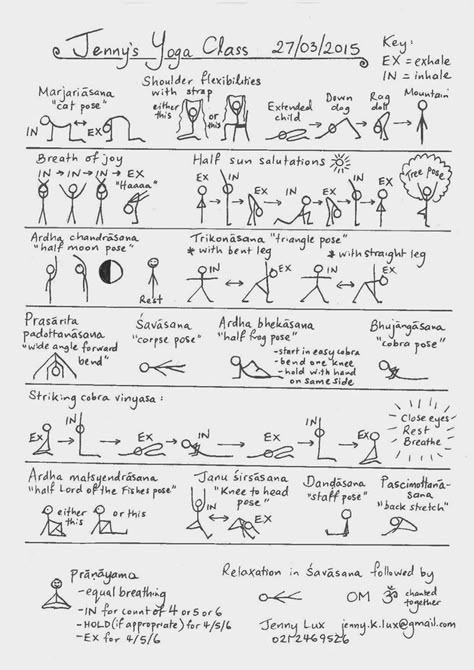 Jenny's Yoga Class 27/03/2015
Key:
EX = exhale
IN = inhale
Marjariāsana
"cat pose"
IN EX
Shoulder flexibilities
with strap
either
this
or
this
Extended
child
Down
dog
Rag
doll
Mountain
Breath of joy
IN → IN → IN → EX
"Haaaa"
Half sun salutations
EX IN EX IN EX IN EX
Tree pose
Ardha chandrāsana
"half moon pose"
Rest
Trikonāsana "triangle pose"
* with bent leg
* with straight leg
IN EX IN EX
Prasārita
padottanāsana
"wide angle forward
bend"
Śavāsana
"corpse pose"
Ardha bhekāsana
"half frog pose"
- start in easy cobra
- bend one knee
- hold with hand
on same side
Bhujāngāsana
"cobra pose"
Striking cobra vinyasa:
EX IN EX IN EX IN EX
Close eyes
Rest
Breathe
Ardha matsyendrāsana
"half Lord of the Fishes pose"
either
this
or this
Janu śirsāsana
"Knee to head
pose"
IN
EX
Dandāsana
"staff pose"
Pascimottanā-
sana
"back stretch"
Prāṇāyama
- equal breathing
- IN for count of 4 or 5 or 6
- HOLD (if appropriate) for 4/5/6
- EX for 4/5/6
Relaxation in Śavāsana followed by
OM ॐ chanted
together
Jenny Lux jenny.k.lux@gmail.com
0212469526